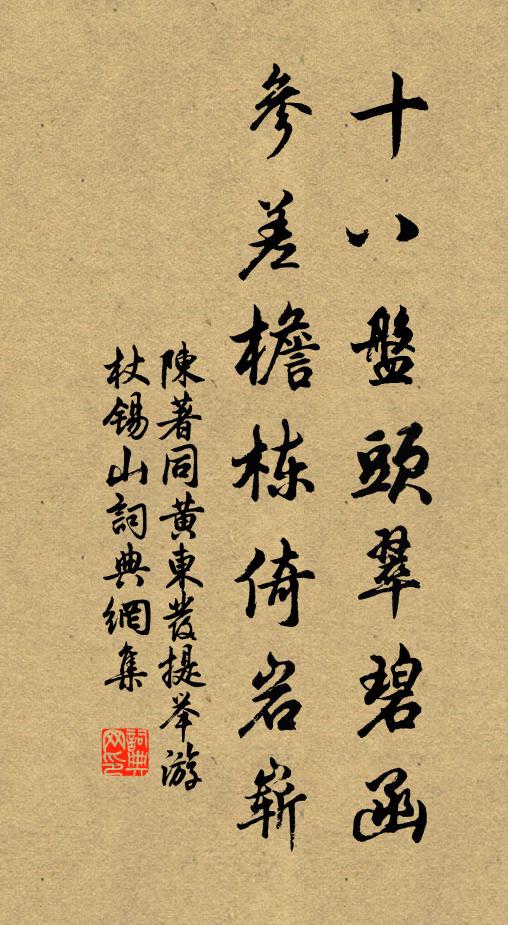 十八盤頭翠碧函
參差檐栋倚岩嶄
陳著同黄東發提举游
杖錫山詞典網集
詞典网